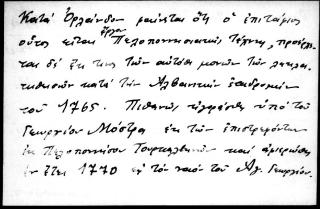 Κατά Ὀρλάνδον φαίνεται ὅτι ὁ ἐπιτάφιος
οὗτος εἶναι ἔργον Πελοποννησιακῆς τέχνης, προέρχε-
ται δέ ἐκ τινος τῶν αὐτόθι μονῶν τῶν λεηλα-
τηθεισῶν κατά τήν Ἀλβανικήν ἐπιδρομήν
τοῦ 1765. Πιθανῶς ἠγοράσθη ὑπό τοῦ
Γεωργίου Μόστρα ἐκ τῶν ἐπιστρεφόντων
ἐκ Πελοποννήσου Τουρκαλβανῶν καί ἀφιερώθη
ἐν ἔτει 1770 εἰς τόν ναόν τοῦ Ἁγ. Γεωργίου.